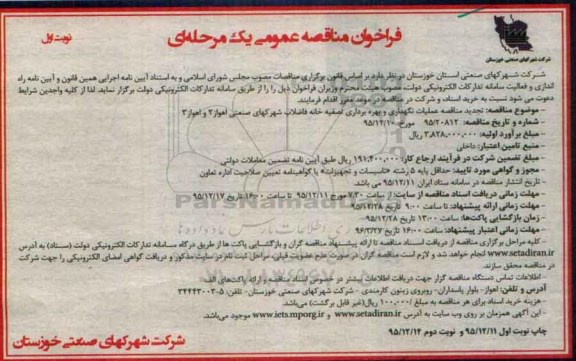 نوبت اول
فراخوان مناقصه عمومی یک مرحله‌ای
شرکت شهرکهای صنعتی خوزستان
شرکت شهرکهای صنعتی استان خوزستان در نظر دارد بر اساس قانون برگزاری مناقصات مصوب مجلس شورای اسلامی و به استناد آیین نامه اجرایی همین قانون و آیین نامه راه
اندازی و فعالیت سامانه تدارکات الکترونیکی دولت، مصوب هیئت محترم وزیران فراخوان ذیل را از طریق سامانه تدارکات الکترونیکی دولت برگزار نماید. لذا از کلیه واجدین شرایط
دعوت می شود نسبت به خرید اسناد، و شرکت در مناقصه در موعد مقرر اقدام فرمایند.
- موضوع مناقصه: تجدید مناقصه عملیات نگهداری و بهره برداری تصفیه خانه فاضلاب شهرکهای صنعتی اهواز۲ و اهواز۳
- شماره و تاریخ مناقصه: ۹۵/۲۰۸۱۲ مورخ ۹۵/۱۲/۱۰
- مبلغ برآورد اولیه: ۳,۸۲۸,۰۰۰,۰۰۰ ریال
- منبع تامین اعتبار: داخلی
- مبلغ تضمین شرکت در فرآیند ارجاع کار: ۱۹۱,۴۰۰,۰۰۰ ریال طبق آیین نامه تضمین معاملات دولتی
- مجوز و گواهی مورد تایید: حداقل پایه ۵ رشته «تاسیسات و تجهیزات» یا گواهینامه تعیین صلاحیت اداره تعاون
- تاریخ انتشار مناقصه در سامانه ستاد ایران ۹۵/۱۲/۱۱ می باشد.
- مهلت زمانی دریافت اسناد مناقصه از سایت: از ساعت ۷:۳۰ مورخ ۹۵/۱۲/۱۱ تا ساعت ۱۶:۰۰ تاریخ ۹۵/۱۲/۱۷
- مهلت زمانی ارائه پیشنهاد: تا ساعت ۹:۰۰ تاریخ ۹۵/۱۲/۲۸
- زمان بازگشایی پاکت‌ها: ساعت ۱۳:۰۰ تاریخ ۹۵/۱۲/۲۸
- مهلت زمانی اعتبار پیشنهاد: ساعت ۱۶:۰۰ تاریخ ۹۶/۳/۲۷
- کلیه مراحل برگزاری مناقصه از دریافت اسناد مناقصه تا ارائه پیشنهاد مناقصه گران و بازگشایی پاکت ها از طریق درگاه سامانه تدارکات الکترونیکی دولت (ستاد) به آدرس
www.setadiran.ir انجام خواهد شد و لازم است مناقصه گران در صورت عدم عضویت قبلی، مراحل ثبت نام در سایت مذکور و دریافت گواهی امضای الکترونیکی را جهت شرکت
در مناقصه محقق سازند.
- اطلاعات تماس دستگاه مناقصه گزار جهت دریافت اطلاعات بیشتر در خصوص اسناد مناقصه و ارائه پاکت‌های الف:
آدرس و تلفن: اهواز- بلوار پاسداران- روبروی زیتون کارمندی - شرکت شهرکهای صنعتی خوزستان- تلفن: ۵-۳۴۴۴۳۰۰۳
- هزینه خرید اسناد برای هر مناقصه به مبلغ /۱۰۰,۰۰۰ ریال(غیر قابل برگشت) می‌باشد.
- این آگهی همزمان بر روی وب سایت به آدرس www.setadiran.ir و www.iets.mporg.ir موجود می‌باشد.
چاپ نوبت اول ۹۵/۱۲/۱۱ و نوبت دوم ۹۵/۱۲/۱۴
شرکت شهرکهای صنعتی خوزستان